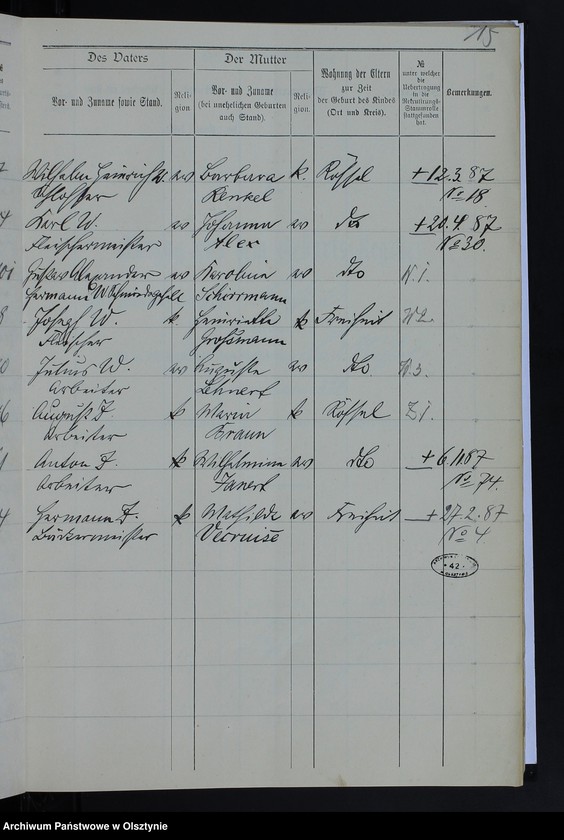 15
Des Vaters
Der Mutter
Wohnung der Eltern
zur Zeit
der Geburt des Kindes
(Ort und Kreis).
№
unter welcher
die
Uebertragung
in die
Rekrutirungs-
Stammrolle
stattgefunden
hat.
Bemerkungen.
Vor- und Zuname sowie Stand.
Reli-
gion.
Vor- und Zuname
(bei unehelichen Geburten
auch Stand).
Reli-
gion.
Wilhelm Heinrich W. ev Barbara k. Rössel + 12.3.87
Schlosser Renkel No 18.
Karl W. ev Johanna ev dto + 20.4.87
Fleischermeister Alex No 30.
Gustav Alexander ev Karolina ev dto W.1.
Hermann W Schmiedegesell Schörrmann
Joseph W. k. Heinriette k Freiheit W2
Fleischer Großmann
Julius W. ev Auguste ev dto W.3.
Arbeiter Lehnert
August Z. k Maria k Rössel Z.1.
Arbeiter Braun
Anton Z. k Wilhelmine ev dto + 6.11.87
Arbeiter No 74.
Hermann Z. k Mathilde ev Freiheit + 27.2.87
Bäckermeister No 4
42
Archiwum Państwowe w Olsztynie